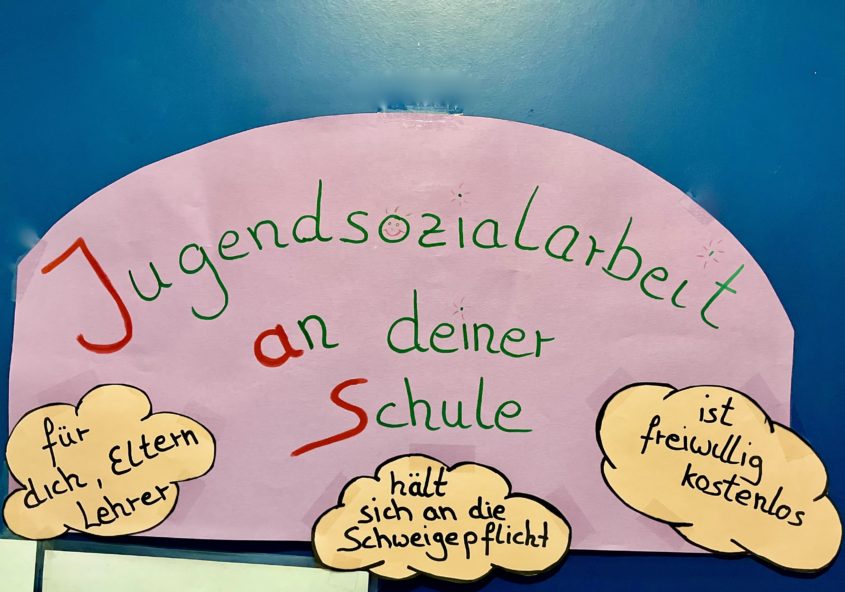 Jugendsozialarbeit
an deiner
Schule
für
dich, Eltern
Lehrer
hält
sich an die
Schweigepflicht
ist
freiwillig
kostenlos